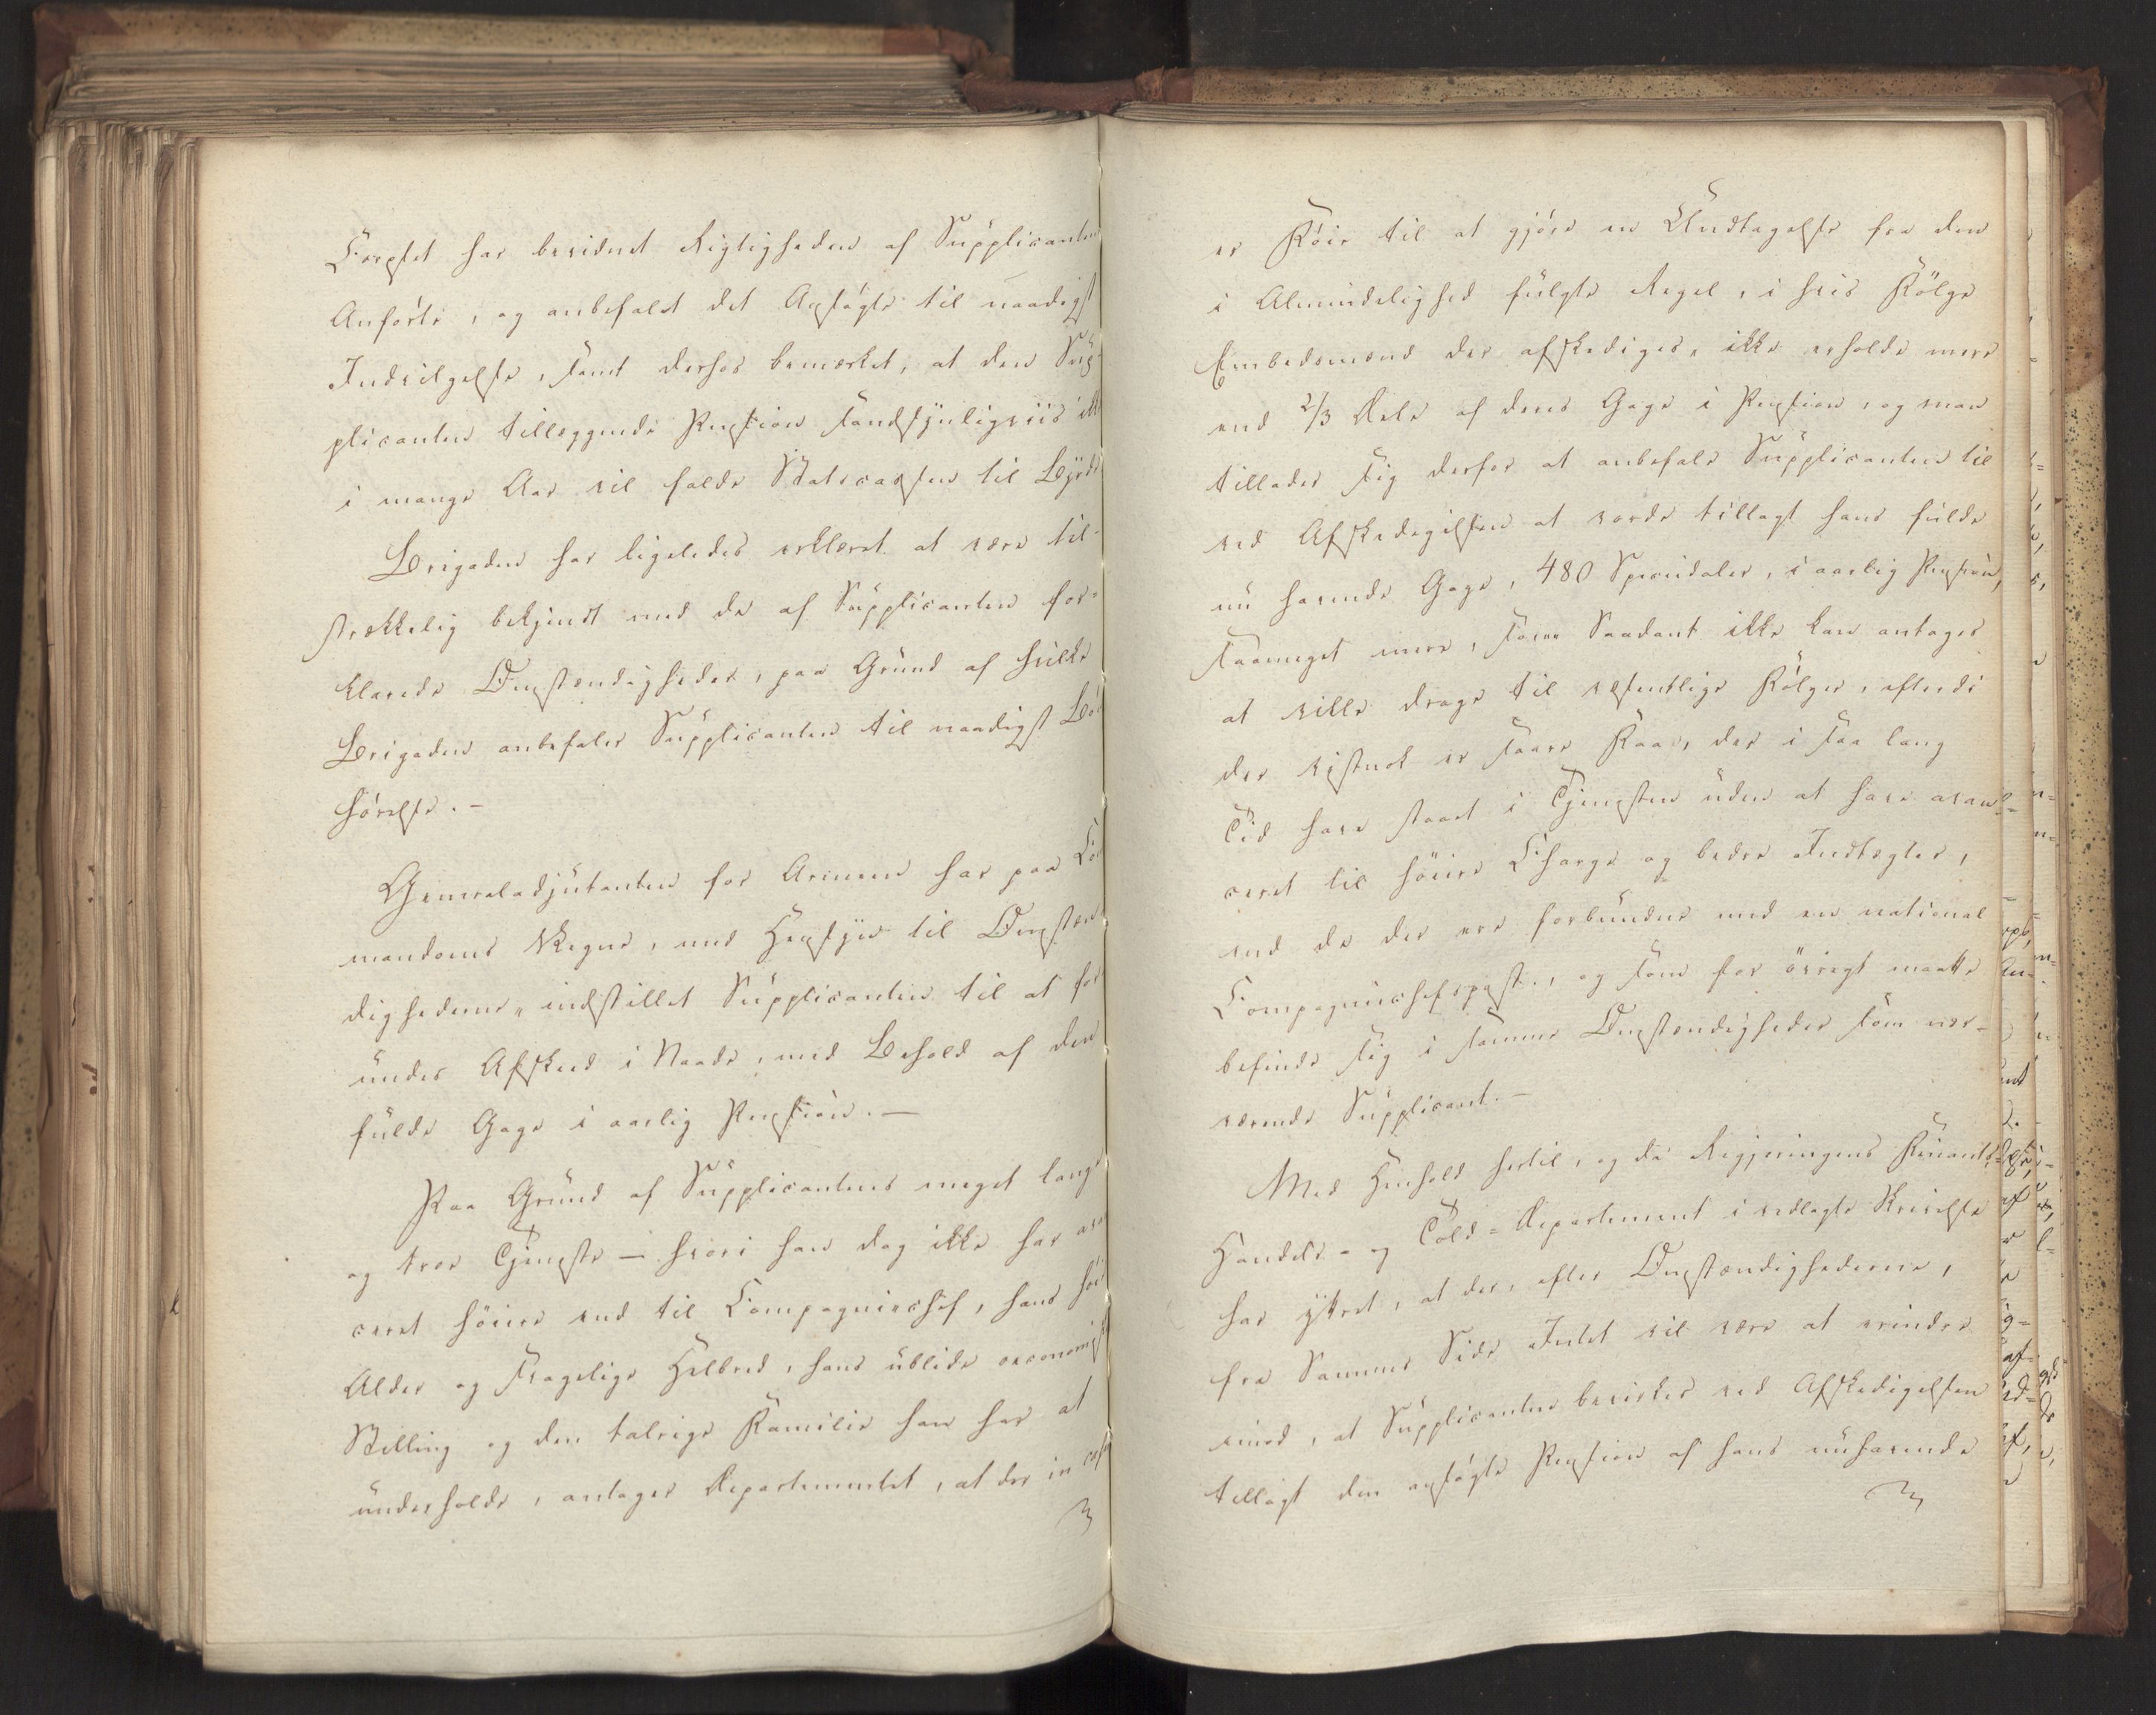 Corpset har bevidnet Rigtigheden af Supplicanten
Anførte, og anbefalet det Ansøgte til naadigst
Indvilgelse, samt derhos bemærket, at den Sup-
plicanten tillæggende Pension sandsynligviis ikke
i mange Aar vil falde Statscassen til Byrde
Brigaden har ligeledes erklæret at være til-
strækkelig bekjendt med de af Supplicanten for-
klarede Omstændigheder, paa Grund af hvilke
Brigaden anbefaler Supplicanten til naadigst Bøn-
hørelse. –
Generaladjutanten for Armeen har paa Com
mandoens Vegne, med Hensyn til Omstæn
dighederne, indstillet Supplicanten til at for
undes Afsked i Naade, med Behold af den
fulde Gage i aarlig Pension. –
Paa Grund af Supplicantens meget lange
og troe Tjeneste – hvori han dog ikke har avan
ceret høiere end til Compagniechef, hans høie
Alder og svagelige Helbred, hans ublide oeconomiske
Stilling og den talrige Familie han har at
underholde, antager Departementet, at der in casu
er Føie til at gjøre en Undtagelse fra den
i Almindelighed fulgte Regel, i hvis Følge
Embedsmænd der afskediges, ikke erholde mere
end 2/3 Dele af deres Gage i Pension, og man
tillader sig derfor at anbefale Supplicanten til
ved Afskedigelsen at vorde tillagt hans fulde
nu havende Gage, 480 Speciedaler, i aarlig Pension,
saameget mere, som Saadant ikke kan antages
at ville drage til væsentlige Følger, efterdi
der vistnok er saare Faa, der i saa lang
Tid have staaet i Tjenesten uden at have avan-
ceret til høiere Charge og bedre Indtægter,
end de der ere forbundne med en national
Compagniechefspost, og som for øvrigt maatte
befinde sig i samme Omstændigheder som nær-
værende Supplicant. –
Med Henhold hertil, og da Regjeringens Finants-
Handels- og Told-Departement i vedlagte Skrivelse
har yttret, at der, efter Omstændighederne,
fra Sammes Side Intet vil være at erindre
imod, at Supplicanten bevirkes ved Afskedigelsen
tillagt den ansøgte Pension af hans nuhavende